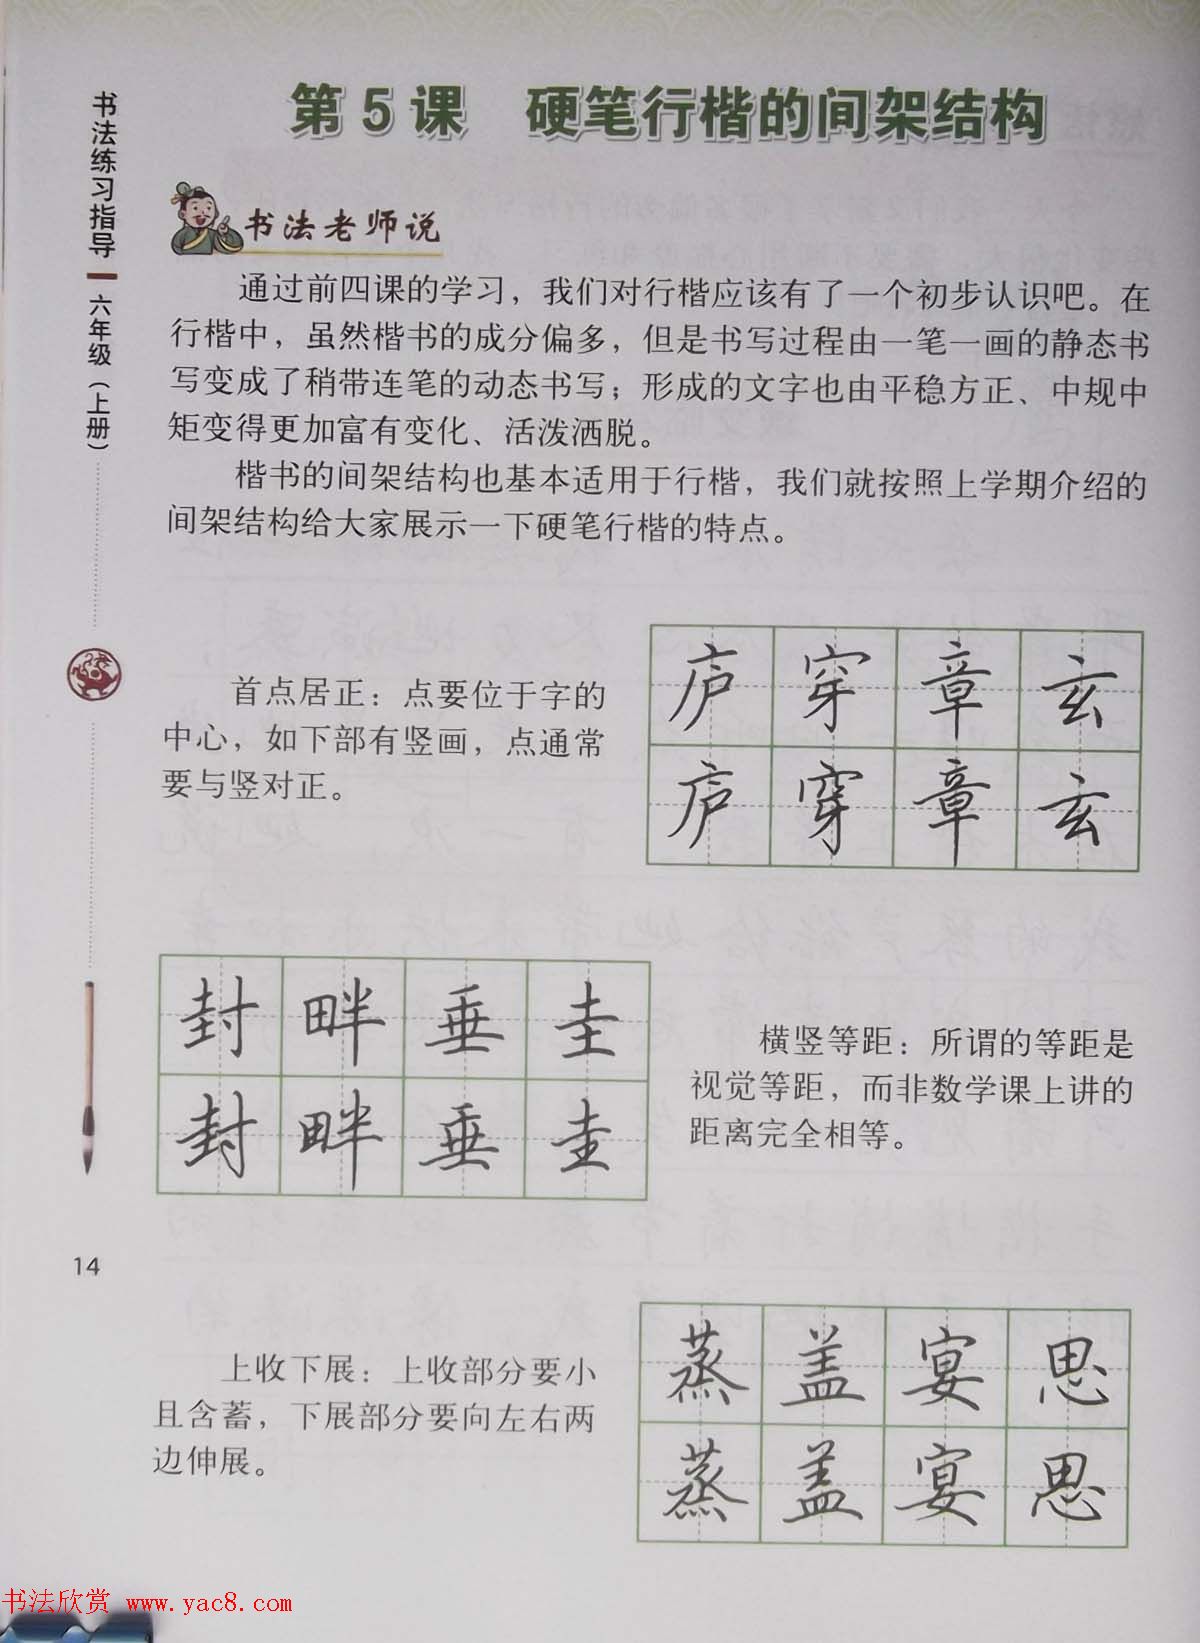 第5课 硬笔行楷的间架结构
书法练习指导
六年级（上册）
书法老师说
通过前四课的学习，我们对行楷应该有了一个初步认识吧。在
行楷中，虽然楷书的成分偏多，但是书写过程由一笔一画的静态书
写变成了稍带连笔的动态书写；形成的文字也由平稳方正、中规中
矩变得更加富有变化、活泼洒脱。
楷书的间架结构也基本适用于行楷，我们就按照上学期介绍的
间架结构给大家展示一下硬笔行楷的特点。
首点居正：点要位于字的
中心，如下部有竖画，点通常
要与竖对正。
庐 穿 章 玄
庐 穿 章 玄
封 畔 垂 圭
封 畔 垂 圭
横竖等距：所谓的等距是
视觉等距，而非数学课上讲的
距离完全相等。
14
上收下展：上收部分要小
且含蓄，下展部分要向左右两
边伸展。
蒸 盖 宴 思
蒸 盖 宴 思
书法欣赏 www.yac8.com